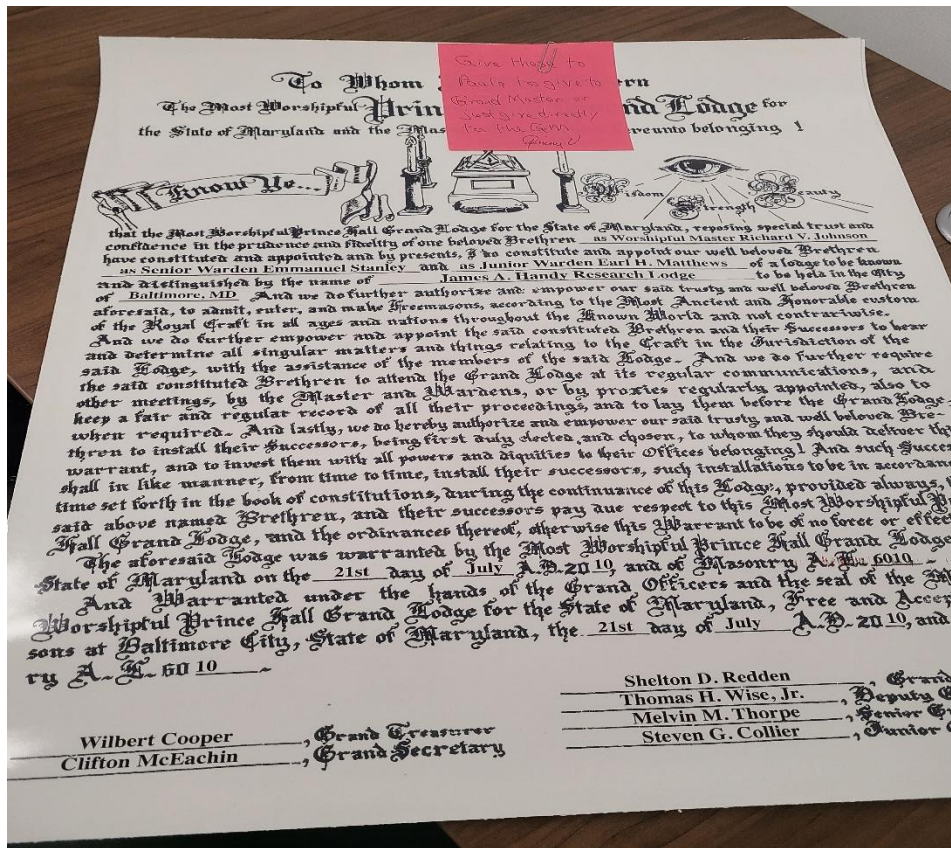 To Whom
ern
The Most Worshipful Prin
nd Lodge for
the State of Maryland and the Mas
ereunto belonging !
Give these to
Paula to give to
Grand Master or
just give directly
to the GM
Know Ye...
Wisdom
Strength
Beauty
that the Most Worshipful Prince Hall Grand Lodge for the State of Maryland, reposing special trust and
confidence in the prudence and fidelity of one beloved Brethren as Worshipful Master Richard V. Johnson
have constituted and appointed and by presents, I do constitute and appoint our well beloved Brethren
as Senior Warden Emmanuel Stanley and as Junior Warden Earl H. Matthews of a lodge to be known
and distinguished by the name of James A. Handy Research Lodge to be held in the City
of Baltimore, MD And we do further authorize and empower our said trusty and well beloved Brethren
aforesaid, to admit, enter, and make Freemasons, according to the Most Ancient and Honorable custom
of the Royal Craft in all ages and nations throughout the Known World and not contrariwise.
And we do further empower and appoint the said constituted Brethren and their Successors to hear
and determine all singular matters and things relating to the Craft in the Jurisdiction of the
said Lodge, with the assistance of the members of the said Lodge. And we do further require
the said constituted Brethren to attend the Grand Lodge at its regular communications, and
other meetings, by the Master and Wardens, or by proxies regularly appointed, also to
keep a fair and regular record of all their proceedings, and to lay them before the Grand Lodge
when required. And lastly, we do hereby authorize and empower our said trusty and well beloved Bre-
thren to install their Successors, being first duly elected, and chosen, to whom they should deliver thi
warrant, and to invest them with all powers and diquities to their Offices belonging! And such Succes
shall in like manner, from time to time, install their successors, such installations to be in accordan
time set forth in the book of constitutions, during the continuance of this Lodge, provided always,
said above named Brethren, and their successors pay due respect to this Most Worshipful P
Hall Grand Lodge, and the ordinances thereof, otherwise this Warrant to be of no force or effec
The aforesaid Lodge was warranted by the Most Worshipful Prince Hall Grand Lodge
State of Maryland on the 21st day of July A.D. 20 10, and of Masonry A. L. 6010
And Warranted under the hands of the Grand Officers and the seal of the M
Worshipful Prince Hall Grand Lodge for the State of Maryland, Free and Accep
sons at Baltimore City, State of Maryland, the 21st day of July A.D. 20 10, and
ry A. L. 60 10
Shelton D. Redden, Grand
Thomas H. Wise, Jr., Deputy G
Melvin M. Thorpe, Senior G
Steven G. Collier, Junior
Wilbert Cooper, Grand Treasurer
Clifton McEachin, Grand Secretary